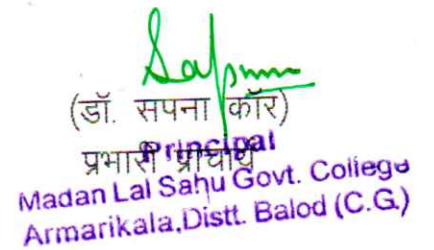 Sapna
(डॉ. सपना कौर)
प्रभारी प्राचार्य
Principal
Madan Lal Sahu Govt. College
Armarikala,Distt. Balod (C.G.)